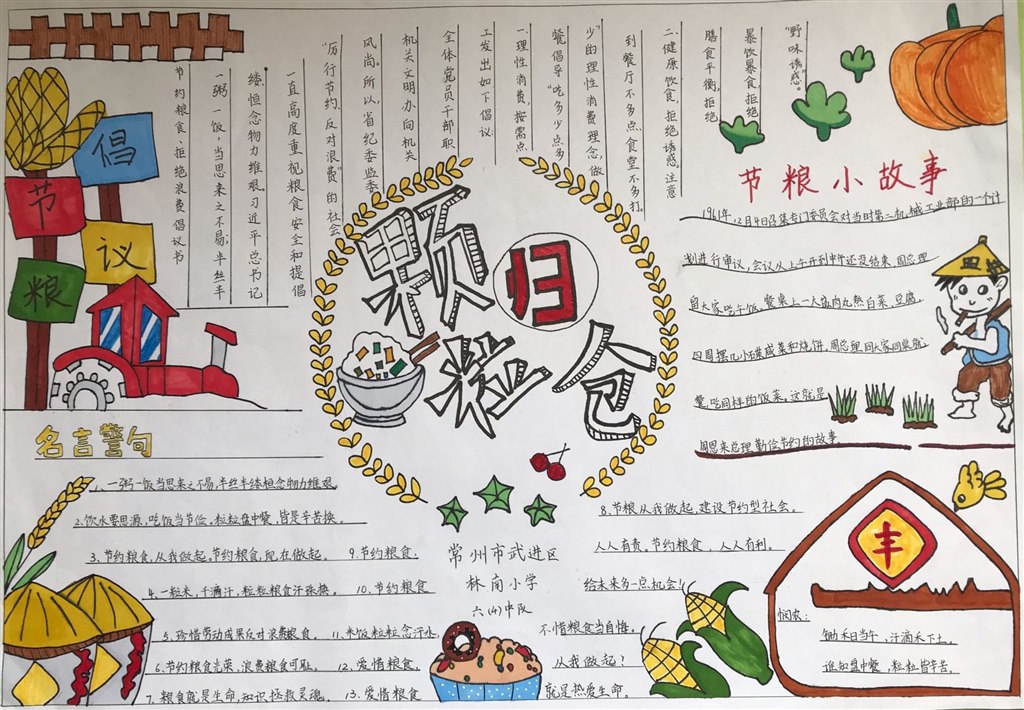 倡
节
议
粮
节约粮食、拒绝浪费倡议书
一粥一饭，当思来之不易；半丝半
缕，恒念物力维艰。习近平总书记
一直高度重视粮食安全和提倡
“厉行节约、反对浪费”的社会
风尚。所以，省纪委监委
机关文明办向机关
全体党员干部职
工发出如下倡议：
一.理性消费，按需点
餐倡导“吃多少点多
少”的理性消费理念，做
到餐厅不多点、食堂不多打。
二.健康饮食，拒绝诱惑。注意
膳食平衡，拒绝
暴饮暴食，拒绝
“野味诱惑”。
颗
粒
归
仓
节粮小故事
1961年12月4日召集专门委员会对当时第二机械工业部的一个计
划进行审议，会议从上午开到中午还没结束，周总理
留大家吃午饭，餐桌上一大盆肉丸熬白菜、豆腐，
四周摆几小碟咸菜和烧饼，周总理同大家同桌就
餐，吃同样的饭菜。这就是
周恩来总理勤俭节约的故事
名言警句
1、一粥一饭当思来之不易，半丝半缕恒念物力维艰
2.饮水要思源，吃饭当节俭，粒粒盘中餐，皆是辛苦换。
3.节约粮食，从我做起。节约粮食，现在做起。
4.一粒米，千滴汗，粒粒粮食汗珠换。
5.珍惜劳动成果反对浪费粮食。
6.节约粮食光荣，浪费粮食可耻。
7.粮食就是生命，知识拯救灵魂。
8.节粮从我做起，建设节约型社会。
9.节约粮食，
人人有责。节约粮食，人人有利。
10.节约粮食
给未来多一点机会！
11.米饭粒粒念汗水
不惜粮食当自悔。
12.爱惜粮食，
从我做起？
13.爱惜粮食
就是热爱生命。
常州市武进区
林南小学
六(4)中队
丰
悯农：
锄禾日当午，汗滴禾下土。
谁知盘中餐，粒粒皆辛苦。